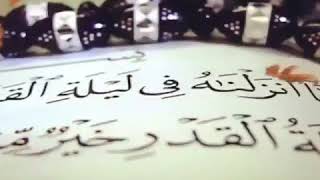 ا أَنزَلْنَٰهُ فِي لَيْلَةِ ٱلْقَ
ةُ ٱلْقَدْرِ خَيْرٌ مِّ